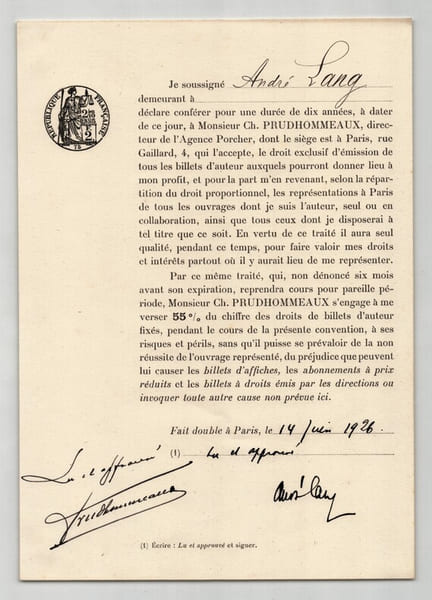 Je soussigné André Lang
demeurant à
déclare conférer pour une durée de dix années, à dater
de ce jour, à Monsieur Ch. PRUDHOMMEAUX, direc-
teur de l'Agence Porcher, dont le siège est à Paris, rue
Gaillard, 4, qui l'accepte, le droit exclusif d'émission de
tous les billets d'auteur auxquels pourront donner lieu à
mon profit, et pour la part m'en revenant, selon la répar-
tition du droit proportionnel, les représentations à Paris
de tous les ouvrages dont je suis l'auteur, seul ou en
collaboration, ainsi que tous ceux dont je disposerai à
tel titre que ce soit. En vertu de ce traité il aura seul
qualité, pendant ce temps, pour faire valoir mes droits
et intérêts partout où il y aurait lieu de me représenter.
Par ce même traité, qui, non dénoncé six mois
avant son expiration, reprendra cours pour pareille pé-
riode, Monsieur Ch. PRUDHOMMEAUX s'engage à me
verser 55 % du chiffre des droits de billets d'auteur
fixés, pendant le cours de la présente convention, à ses
risques et périls, sans qu'il puisse se prévaloir de la non
réussite de l'ouvrage représenté, du préjudice que peuvent
lui causer les billets d'affiches, les abonnements à prix
réduits et les billets à droits émis par les directions ou
invoquer toute autre cause non prévue ici.
Fait double à Paris, le 14 Juin 1926.
(1) Lu et approuvé
Lu et approuvé
Prudhommeaux
André Lang
(1) Écrire : Lu et approuvé et signer.
RÉPUBLIQUE FRANÇAISE